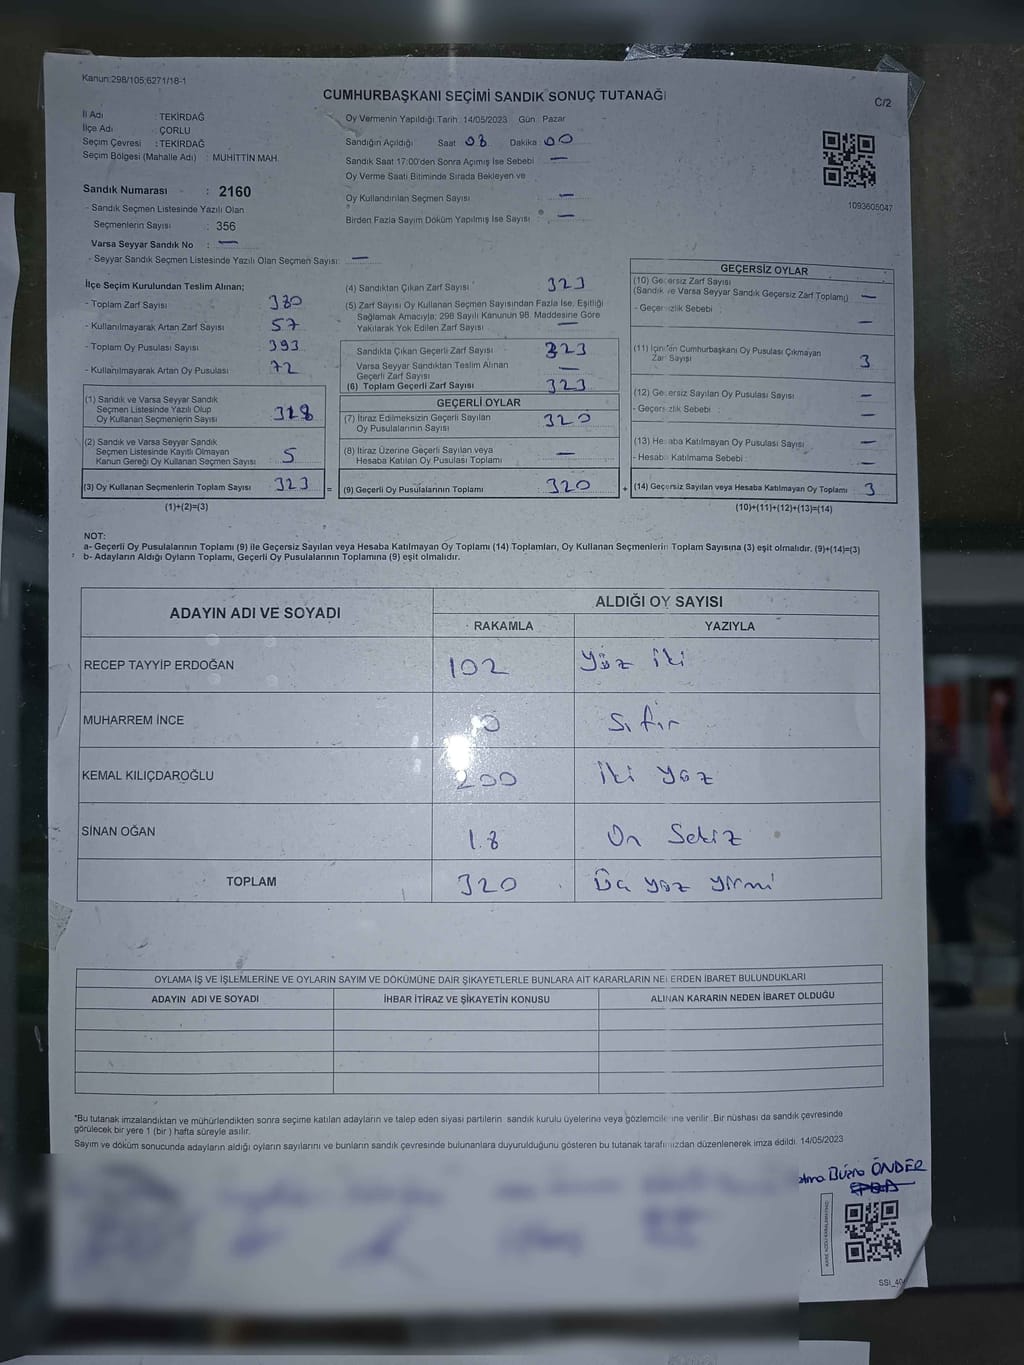 Kanun:298/105;6271/18-1
CUMHURBAŞKANI SEÇİMİ SANDIK SONUÇ TUTANAĞI
C/2
İl Adı : TEKİRDAĞ
İlçe Adı : ÇORLU
Seçim Çevresi : TEKİRDAĞ
Seçim Bölgesi (Mahalle Adı) : MUHİTTİN MAH.
Oy Vermenin Yapıldığı Tarih: 14/05/2023 Gün: Pazar
Sandığın Açıldığı Saat 08 Dakika 00
Sandık Saat 17:00'den Sonra Açımış İse Sebebi —
Oy Verme Saati Bitiminde Sırada Bekleyen ve
Oy Kullandırılan Seçmen Sayısı —
Birden Fazla Sayım Döküm Yapılmış İse Sayısı —
1093605047
Sandık Numarası : 2160
- Sandık Seçmen Listesinde Yazılı Olan
Seçmenlerin Sayısı : 356
Varsa Seyyar Sandık No : —
- Seyyar Sandık Seçmen Listesinde Yazılı Olan Seçmen Sayısı: —
İlçe Seçim Kurulundan Teslim Alınan;
- Toplam Zarf Sayısı 380
- Kullanılmayarak Artan Zarf Sayısı 57
- Toplam Oy Pusulası Sayısı 393
- Kullanılmayarak Artan Oy Pusulası 72
(1) Sandık ve Varsa Seyyar Sandık
Seçmen Listesinde Yazılı Olup
Oy Kullanan Seçmenlerin Sayısı 318
(2) Sandık ve Varsa Seyyar Sandık
Seçmen Listesinde Kayıtlı Olmayan
Kanun Gereği Oy Kullanan Seçmen Sayısı 5
(3) Oy Kullanan Seçmenlerin Toplam Sayısı 323
(1)+(2)=(3)
(4) Sandıktan Çıkan Zarf Sayısı 323
(5) Zarf Sayısı Oy Kullanan Seçmen Sayısından Fazla İse, Eşitliği
Sağlamak Amacıyla; 298 Sayılı Kanunun 98. Maddesine Göre
Yakılarak Yok Edilen Zarf Sayısı —
Sandıkta Çıkan Geçerli Zarf Sayısı 323
Varsa Seyyar Sandıktan Teslim Alınan
Geçerli Zarf Sayısı —
(6) Toplam Geçerli Zarf Sayısı 323
GEÇERLİ OYLAR
(7) İtiraz Edilmeksizin Geçerli Sayılan
Oy Pusulalarının Sayısı 320
(8) İtiraz Üzerine Geçerli Sayılan veya
Hesaba Katılan Oy Pusulası Toplamı —
= (9) Geçerli Oy Pusulalarının Toplamı 320
GEÇERSİZ OYLAR
(10) Geçersiz Zarf Sayısı
(Sandık ve Varsa Seyyar Sandık Geçersiz Zarf Toplamı) —
- Geçersizlik Sebebi —
(11) İçinden Cumhurbaşkanı Oy Pusulası Çıkmayan
Zarf Sayısı 3
(12) Geçersiz Sayılan Oy Pusulası Sayısı —
- Geçersizlik Sebebi —
(13) Hesaba Katılmayan Oy Pusulası Sayısı —
- Hesaba Katılmama Sebebi —
+ (14) Geçersiz Sayılan veya Hesaba Katılmayan Oy Toplamı 3
(10)+(11)+(12)+(13)=(14)
NOT:
a- Geçerli Oy Pusulalarının Toplamı (9) ile Geçersiz Sayılan veya Hesaba Katılmayan Oy Toplamı (14) Toplamları, Oy Kullanan Seçmenlerin Toplam Sayısına (3) eşit olmalıdır. (9)+(14)=(3)
b- Adayların Aldığı Oyların Toplamı, Geçerli Oy Pusulalarının Toplamına (9) eşit olmalıdır.
ADAYIN ADI VE SOYADI
ALDIĞI OY SAYISI
RAKAMLA YAZIYLA
RECEP TAYYİP ERDOĞAN 102 Yüz iki
MUHARREM İNCE 0 Sıfır
KEMAL KILIÇDAROĞLU 200 İki yüz
SİNAN OĞAN 18 On Sekiz
TOPLAM 320 Üç yüz yirmi
OYLAMA İŞ VE İŞLEMLERİNE VE OYLARIN SAYIM VE DÖKÜMÜNE DAİR ŞİKAYETLERLE BUNLARA AİT KARARLARIN NELERDEN İBARET BULUNDUKLARI
ADAYIN ADI VE SOYADI İHBAR İTİRAZ VE ŞİKAYETİN KONUSU ALINAN KARARIN NEDEN İBARET OLDUĞU
*Bu tutanak imzalandıktan ve mühürlendikten sonra seçime katılan adayların ve talep eden siyasi partilerin sandık kurulu üyelerine veya gözlemcilerine verilir. Bir nüshası da sandık çevresinde
görülecek bir yere 1 (bir) hafta süreyle asılır.
Sayım ve döküm sonucunda adayların aldığı oyların sayılarını ve bunların sandık çevresinde bulunanlara duyurulduğunu gösteren bu tutanak tarafımızdan düzenlenerek imza edildi. 14/05/2023
Büşra ÖNDER